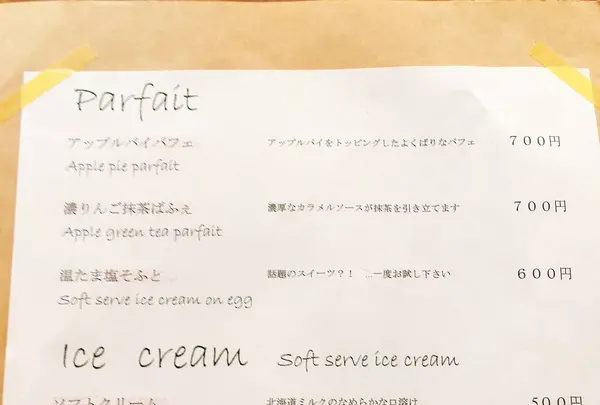 Parfait
アップルパイパフェ アップルパイをトッピングしたよくばりなパフェ 700円
Apple pie parfait
濃りんご抹茶ぱふぇ 濃厚なカラメルソースが抹茶を引き立てます 700円
Apple green tea parfait
温たま塩そふと 話題のスイーツ?! …一度お試し下さい 600円
Soft serve ice cream on egg
Ice cream Soft serve ice cream
ソフトクリーム 北海道ミルクのなめらかな口溶け 500円